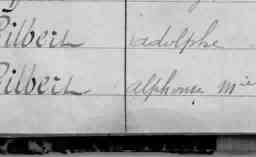 Gilbert adolphe
Gilbert alphonse Mie